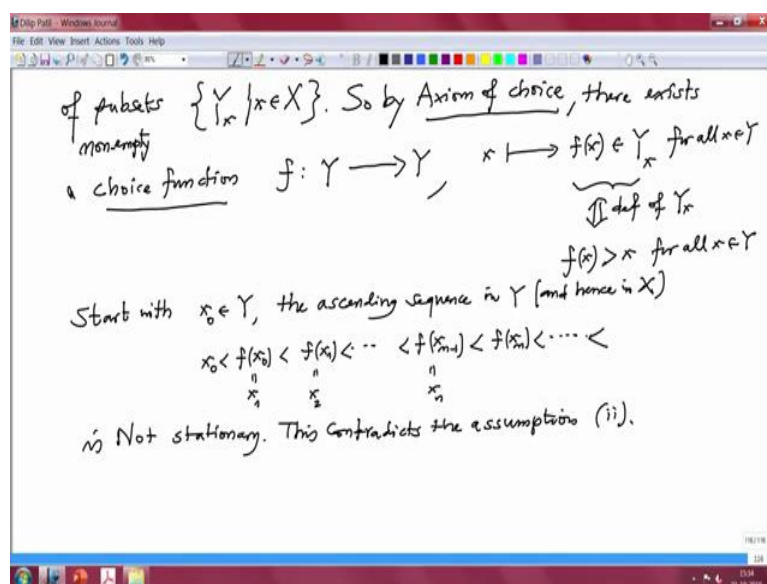 Dilip Patil - Windows Journal
File Edit View Insert Actions Tools Help
of subsets {Y_x | x ∈ X}. So by Axiom of choice, there exists
non-empty
a choice function f: Y ⟶ Y, x ⟼ f(x) ∈ Y_x for all x ∈ Y
⇕ def of Y_x
f(x) > x for all x ∈ Y
Start with x_0 ∈ Y, the ascending sequence in Y (and hence in X)
x_0 < f(x_0) < f(x_1) < ·· < f(x_{n-1}) < f(x_n) < ···· <
" " "
x_1 x_2 x_n
is Not stationary. This contradicts the assumption (ii).
15:14